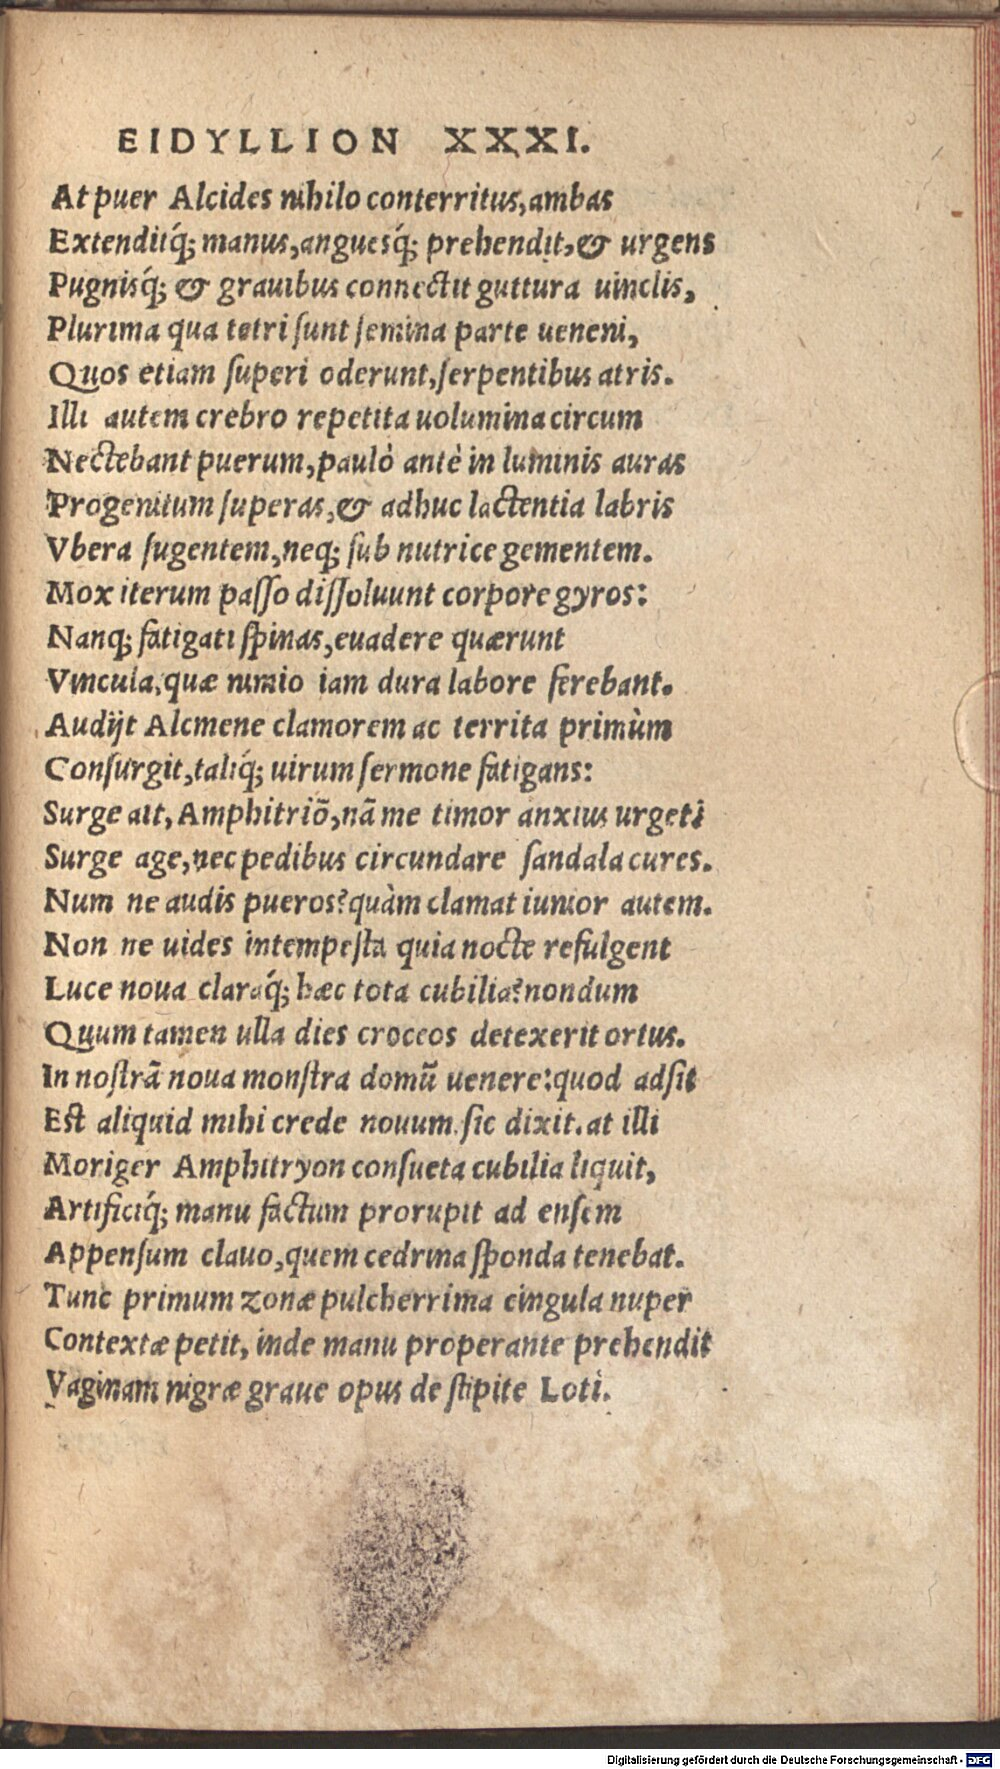 EIDYLLION XXXI.
At puer Alcides nihilo conterritus, ambas
Extenditq́; manus, anguesq́; prehendit, & urgens
Pugnisq́; & grauibus connectit guttura uinclis,
Plurima qua tetri sunt semina parte ueneni,
Quos etiam superi oderunt, serpentibus atris.
Illi autem crebro repetita uolumina circum
Nectebant puerum, paulò antè in luminis auras
Progenitum superas, & adhuc lactentia labris
Vbera sugentem, neq; sub nutrice gementem.
Mox iterum passo dissoluunt corpore gyros:
Nanq; fatigati spinas, euadere quærunt
Vincula, quæ nimio iam dura labore ferebant.
Audijt Alcmene clamorem ac territa primùm
Consurgit, taliq́; uirum sermone fatigans:
Surge ait, Amphitriõ, nã me timor anxius urget:
Surge age, nec pedibus circundare sandala cures.
Num ne audis pueros? quàm clamat iunior autem.
Non ne uides intempesta quia nocte refulgent
Luce noua claraq́; hæc tota cubilia? nondum
Quum tamen ulla dies croceos detexerit ortus.
In nostrã noua monstra domũ uenere: quod adsit
Est aliquid mihi crede nouum. sic dixit. at illi
Moriger Amphitryon consueta cubilia liquit,
Artificiq́; manu factum prorupit ad ensem
Appensum clauo, quem cedrina sponda tenebat.
Tunc primum zonæ pulcherrima cingula nuper
Contextæ petit, inde manu properante prehendit
Vaginam nigræ graue opus de stipite Loti.
Digitalisierung gefördert durch die Deutsche Forschungsgemeinschaft - DFG